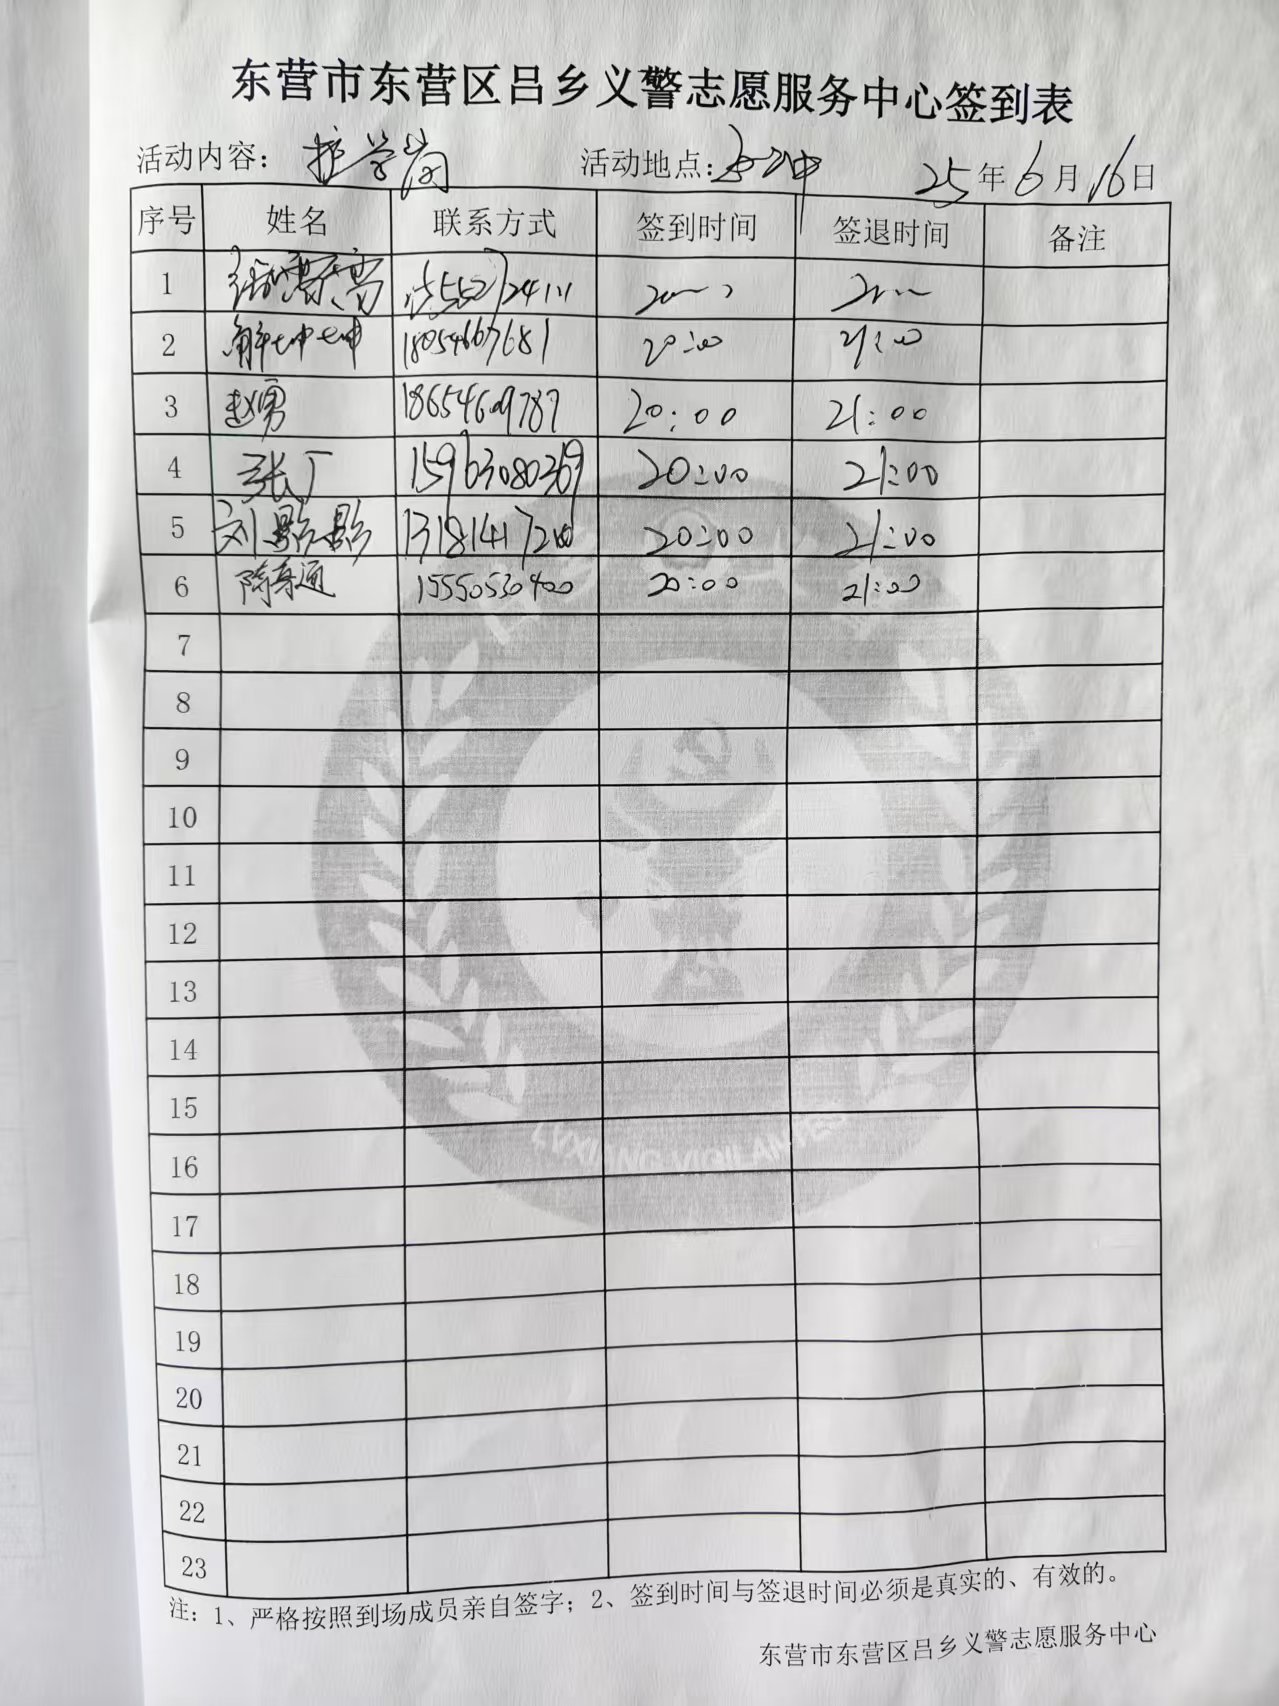 东营市东营区吕乡义警志愿服务中心签到表
活动内容：护学岗 活动地点： 25年6月16日
序号 姓名 联系方式 签到时间 签退时间 备注
1
2 18054667681 20:00 21:00
3 赵勇 18654609787 20:00 21:00
4 张广 15963080369 20:00 21:00
5 刘影影 20:00 21:00
6 15550530400 20:00 21:00
7
8
9
10
11
12
13
14
15
16
17
18
19
20
21
22
23
LVXIANG VIGILANTES
注：1、严格按照到场成员亲自签字；2、签到时间与签退时间必须是真实的、有效的。
东营市东营区吕乡义警志愿服务中心